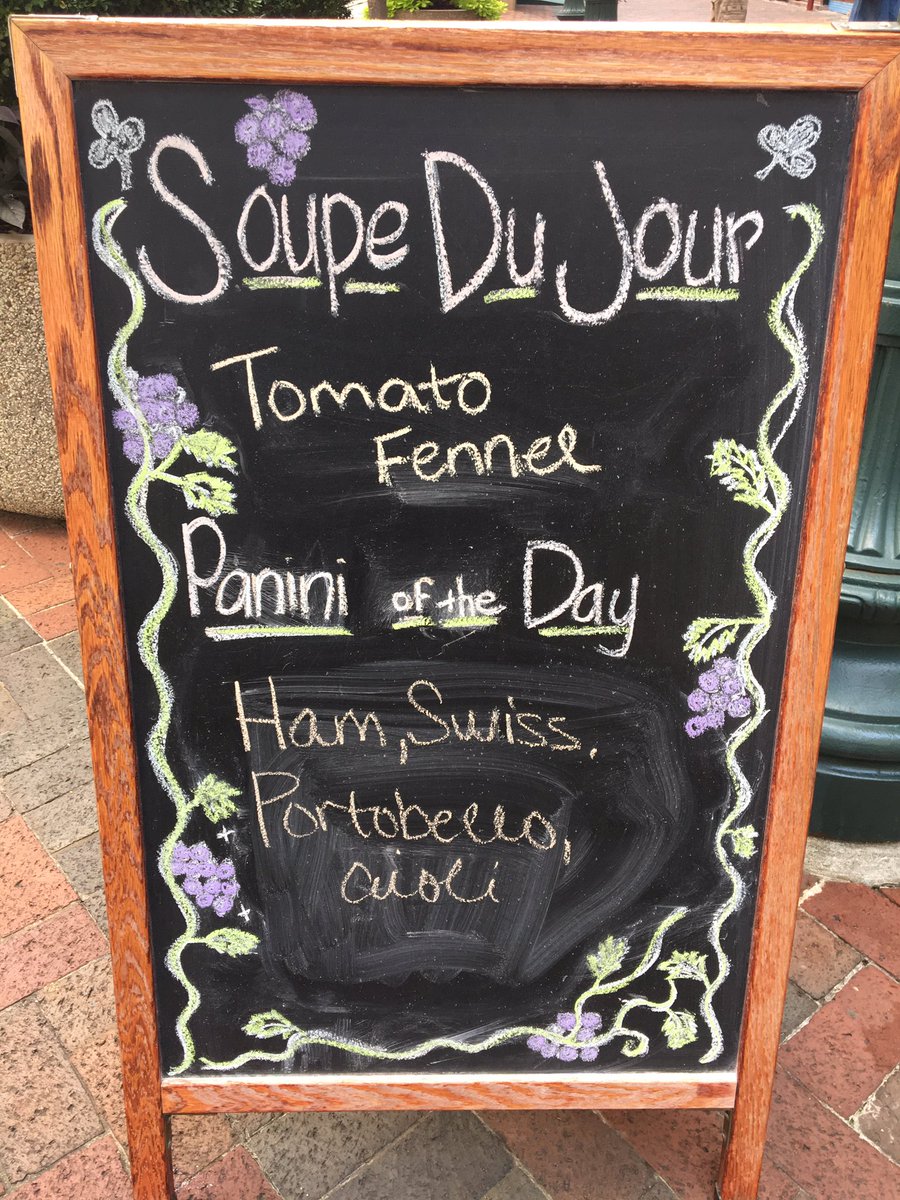 Soupe Du Jour
Tomato
Fennel
Panini of the Day
Ham, Swiss,
Portobello,
aioli